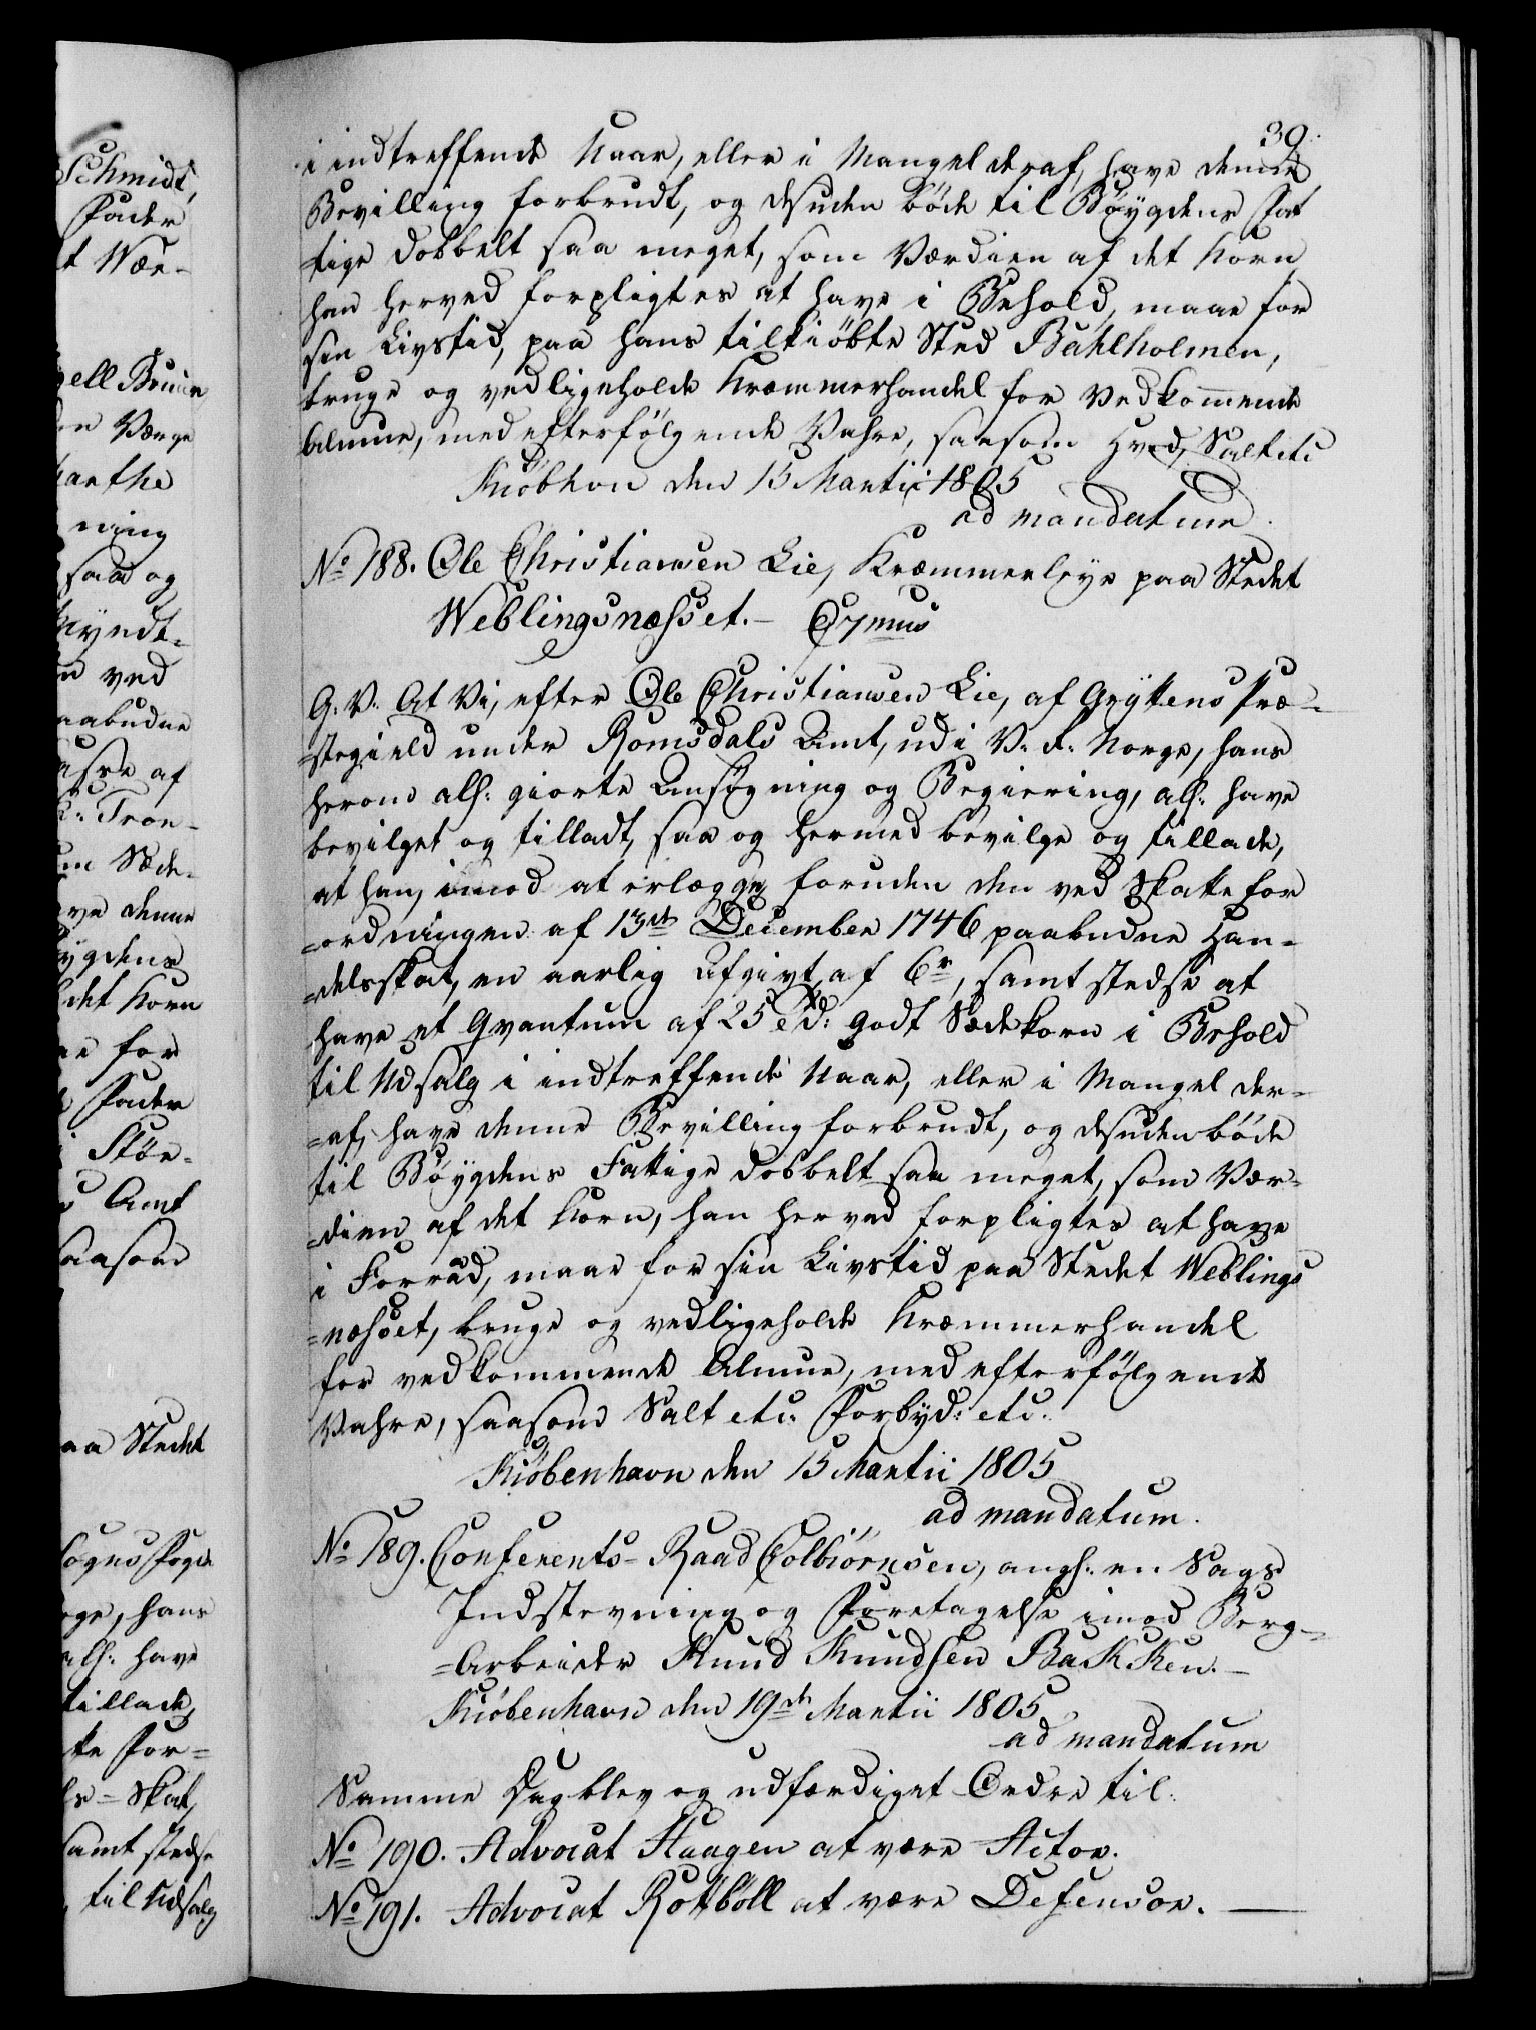 Schmidt,
Foder
t Vær-
ell Bruun
en Værge
narthe
ning
saa og
myndt-
n ved
aabudne
asse af
k: Tron-
em Sæde-
ave denne
øygdens
det Korn
ar for
Foder
Stør-
s Amt
saasom
aa Stedet
Sogns Foged
rge, hans
als: have
tillade,
tte For-
ls-Skat,
samt stedse
til Udsalg
39.
i indtreffende Uaar, eller i Mangel deraf, have denne
Bevilling forbrudt, og desuden böde til Böygdens Fat
tige dobbelt saa meget, som Værdien af det Korn
han herved forpligtes at have i Behold, maae for
sin Livstid, paa hans tilkiöbte Sted Bahlholmen,
bruge og vedligeholde Kræmmerhandel for Vedkommende
Almue, med efterfölgende Vahre, saasom Hved, Salt etc
Kiöbhvn den 15 Martii 1805
ad mandatum.
No 188. Ole Christiansen Lie, Kræmmerleye paa Stedet
Weblingsnæsset.-
G: V: At Vi, efter Ole Christiansen Lie, af Gryttens Præ-
=stegield under Romsdals Amt, udi V: R: Norge, hans
herom als: giorte Ansögning og Begiering, als: have
bevilget og tilladt, saa og hermed bevilge og tillade,
at han, imod at erlægge, foruden den ved Skatte for
=ordningen af 13de December 1746 paabudne Han-
=delsskat, en aarlig Afgivt af 6r, samt stedse at
have et Qvantum af 25 Td: godt Sædekorn i Behold
til Udsalg i indtreffende Uaar, eller i Mangel der-
=af, have denne Bevilling forbrudt, og desuden böde
til Böygdens Fattige dobbelt saa meget, som Vær-
=dien af det Korn, han herved forpligtes at have
i Forraad, maae for sin Livstid paa Stedet Weblings
=næsset, bruge og vedligeholde Kræmmerhandel
for vedkommende Almue, med efterfölgende
Vahre, saasom Salt etc: Forbyd: etc:
Kiöbenhavn den 15 Martii 1805
ad mandatum.
No 189. Conferents-Raad Colbiörnsen, angl: en Sags
Indstevning og Foretagelse imod Berg-
=Arbeider Knud Knudsen Bakken.-
Kiöbenhavn den 19de Martii 1805
ad mandatum
Samme Dag blev og udfærdiget Ordre til:
No 190. Advocat Haagen at være Actor.
No 191. Advocat Rottböll at være Defensor.